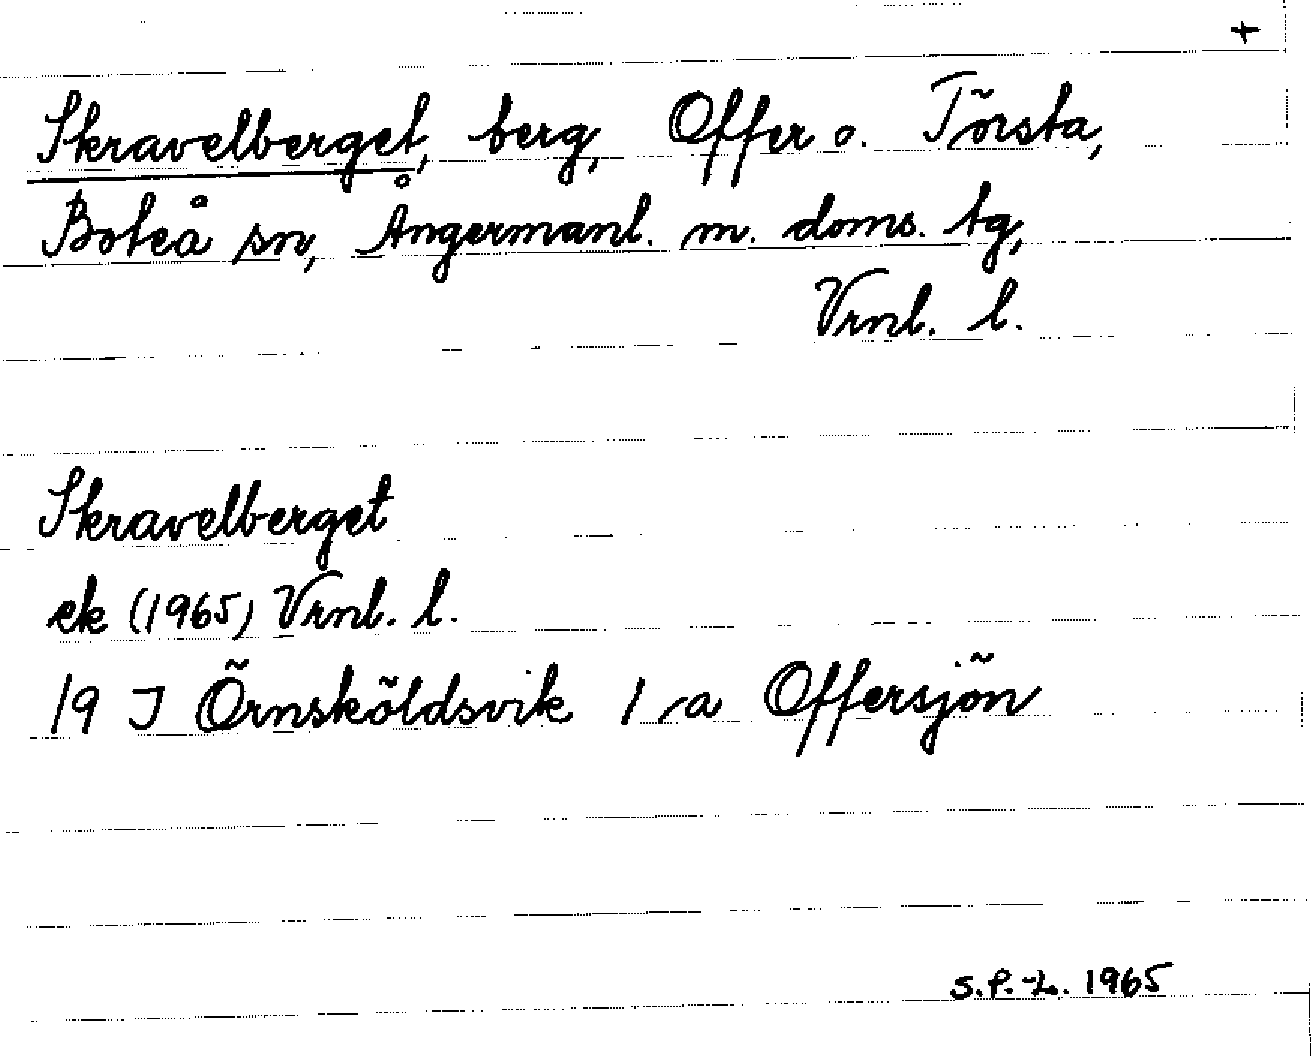 +
Skravelberget, berg, Offer o. Törsta,
Boteå sn, Ångermanl. m. doms. tg,
Vrnl. l.
Skravelberget
ek (1965) Vrnl. l.
19 J Örnsköldsvik 1 a Offersjön
S.P.-L. 1965